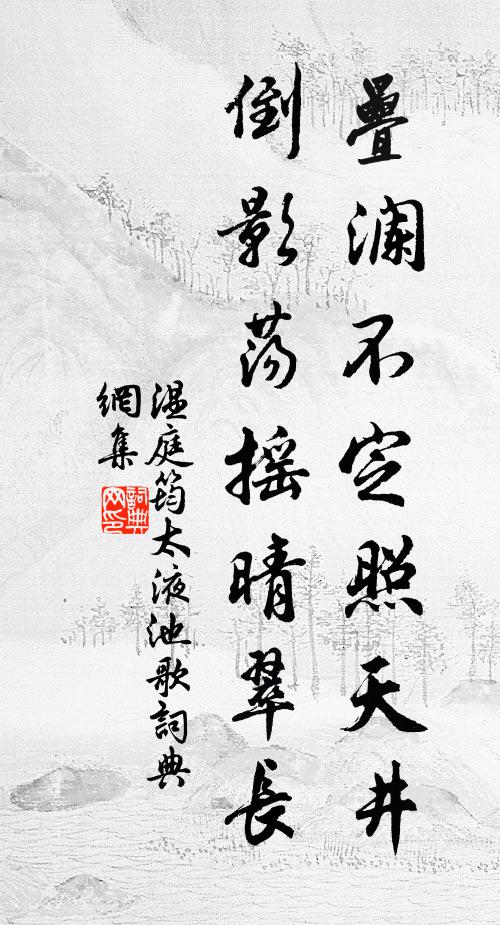 疊瀾不定照天井
倒影荡摇晴翠長
温庭筠太液池歌詞典
網集
詞典
网印